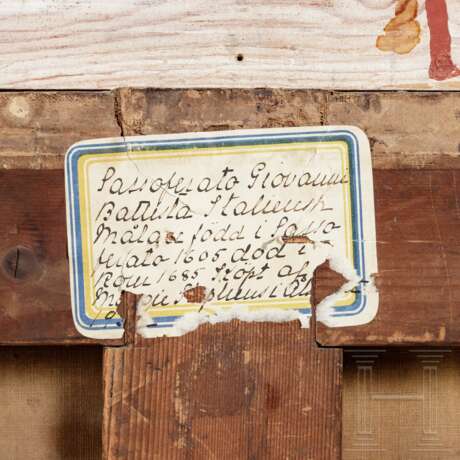 Sassoferato Giovanni
Battista Italiensk
Målare född i Sasso
ferato 1605 död i
Rom 1685 Köpt af